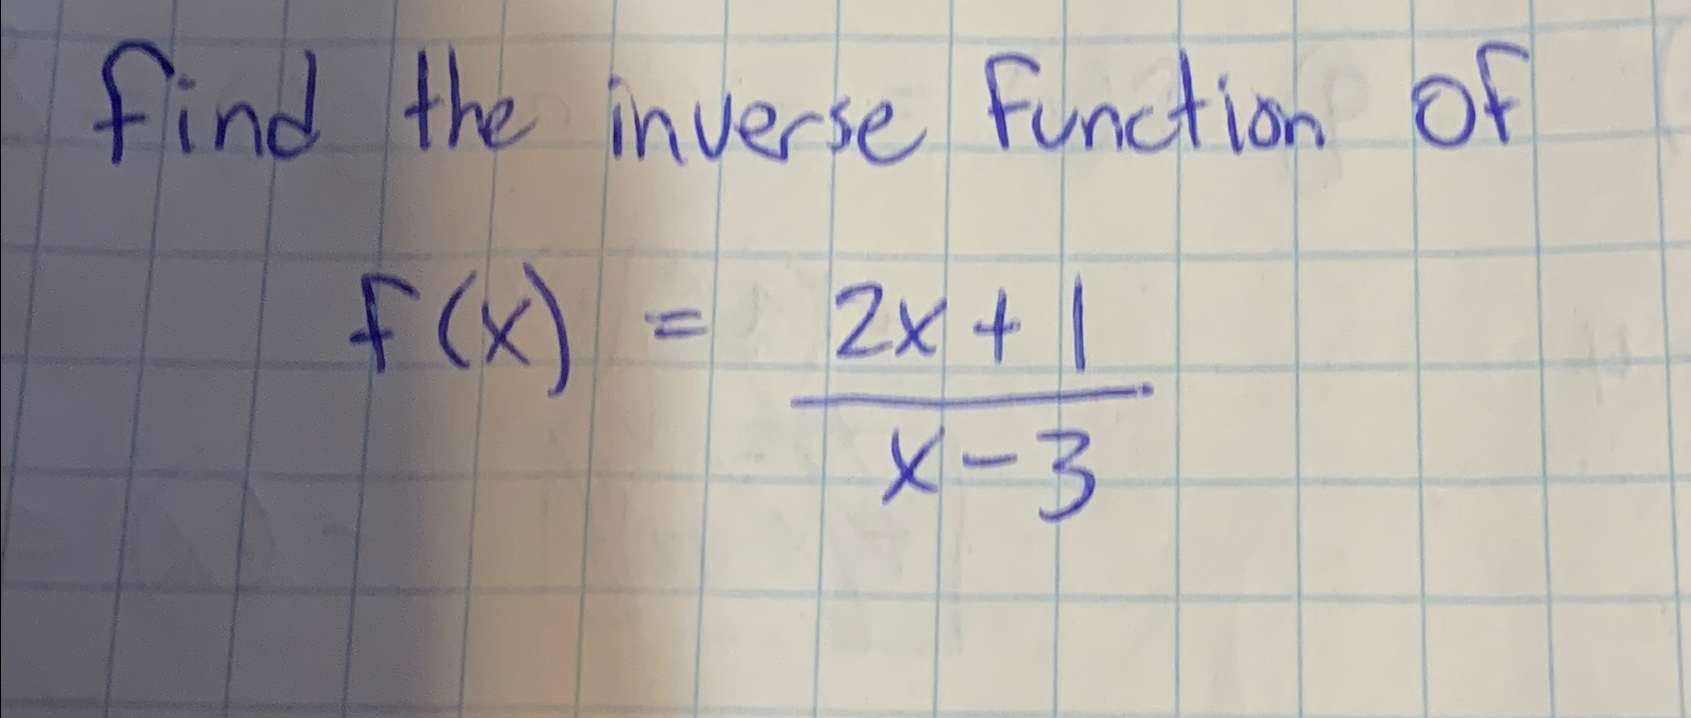 find the inverse function of
f(x) = \frac{2x+1}{x-3}